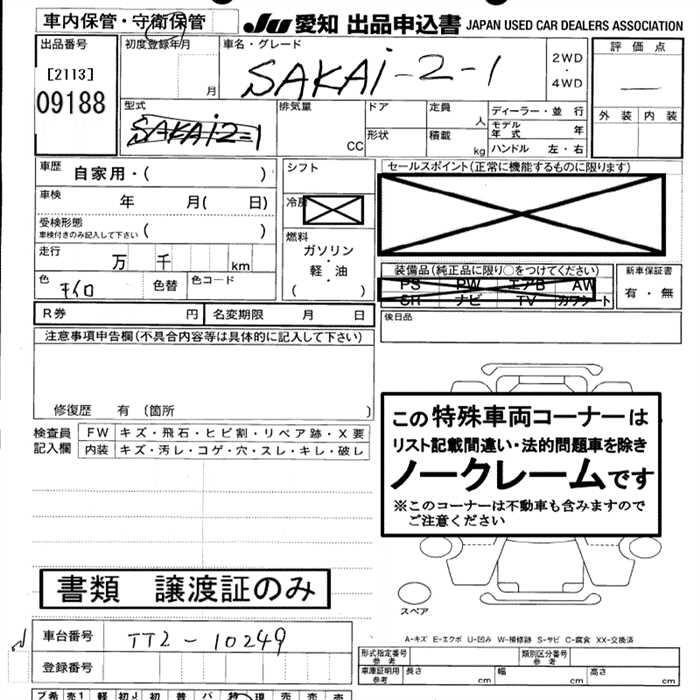 車内保管・守衛保管
JU 愛知 出品申込書 JAPAN USED CAR DEALERS ASSOCIATION
出品番号
[2113]
09188
初度登録年月
月
車名・グレード
SAKAI-2-1
2WD
・
4WD
評価点
外装 内装
型式
SAKAI2-1
排気量
CC
ドア
形状
定員
人
積載
kg
ディーラー・並行
モデル年式 年
ハンドル 左・右
車歴
自家用・( )
車検
年 月( 日)
受検形態
車検付きのみ記入して下さい ( )
走行
万 千 km
色
キイロ
色替
色コード
シフト
冷房
燃料
ガソリン
・
軽・油
( )
セールスポイント(正常に機能するものに限ります)
装備品(純正品に限り○をつけてください)
PS PW エアB AW
SR ナビ TV カワシート
新車保証書
有・無
R券 円
名変期限 月 日
後日品
注意事項申告欄(不具合内容等は具体的に記入して下さい)
修復歴 有(箇所 )
検査員
記入欄
FW キズ・飛石・ヒビ割・リペア跡・X要
内装 キズ・汚レ・コゲ・穴・スレ・キレ・破レ
この特殊車両コーナーは
リスト記載間違い・法的問題車を除き
ノークレームです
※このコーナーは不動車も含みますので
ご注意ください
書類 譲渡証のみ
スペア
車台番号 TT2-10249
登録番号
A-キズ E-エクボ U-凹み W-補修跡 S-サビ C-腐食 XX-交換済
形式指定番号
参考
類別区分番号
参考
車庫証明用
参考
長さ cm 幅 cm 高さ cm